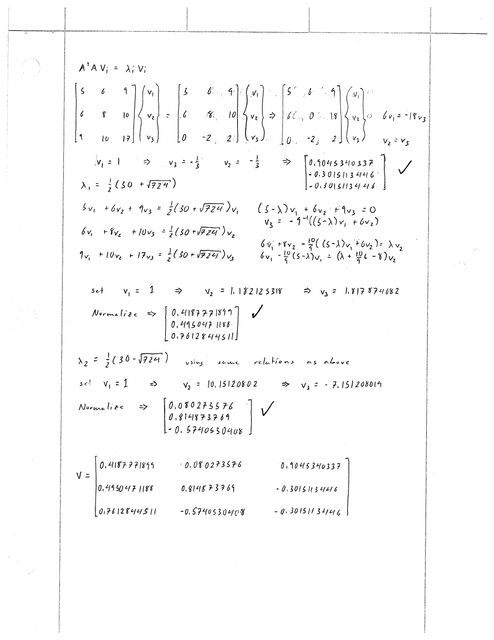 AᵀA Vᵢ = λᵢ Vᵢ
[5 6 9; 6 8 10; 9 10 17] {v₁; v₂; v₃} = [5 6 9; 6 8 10; 0 -2 2] {v₁; v₂; v₃} ⇒ [5 6 9; 6 0 18; 0 -2 2] {v₁; v₂; v₃} 0 6v₁ = -18v₃
v₂ = v₃
v₁ = 1 ⇒ v₃ = -1/3 v₂ = -1/3 ⇒ [0.9045340337; -0.3015113446; -0.3015113446] ✓
λ₁ = ½(30 + √724)
5v₁ + 6v₂ + 9v₃ = ½(30 + √724) v₁ (5-λ)v₁ + 6v₂ + 9v₃ = 0
v₃ = -9⁻¹((5-λ)v₁ + 6v₂)
6v₁ + 8v₂ + 10v₃ = ½(30 + √724) v₂
6v₁ + 8v₂ - 10/9((5-λ)v₁ + 6v₂) = λv₂
9v₁ + 10v₂ + 17v₃ = ½(30 + √724) v₃ 6v₁ - 10/9(5-λ)v₁ = (λ + 10/9 6 - 8)v₂
set v₁ = 1 ⇒ v₂ = 1.182125318 ⇒ v₃ = 1.817874682
Normalize ⇒ [0.4187771899; 0.4950471188; 0.7612844511] ✓
λ₂ = ½(30 - √724) using same relations as above
set v₁ = 1 ⇒ v₂ = 10.15120802 ⇒ v₃ = -7.151208019
Normalize ⇒ [0.080273576; 0.814873769; -0.5740530408] ✓
V = [0.4187771899 0.080273576 0.9045340337
0.4950471188 0.814873769 -0.3015113446
0.7612844511 -0.5740530408 -0.3015113446]